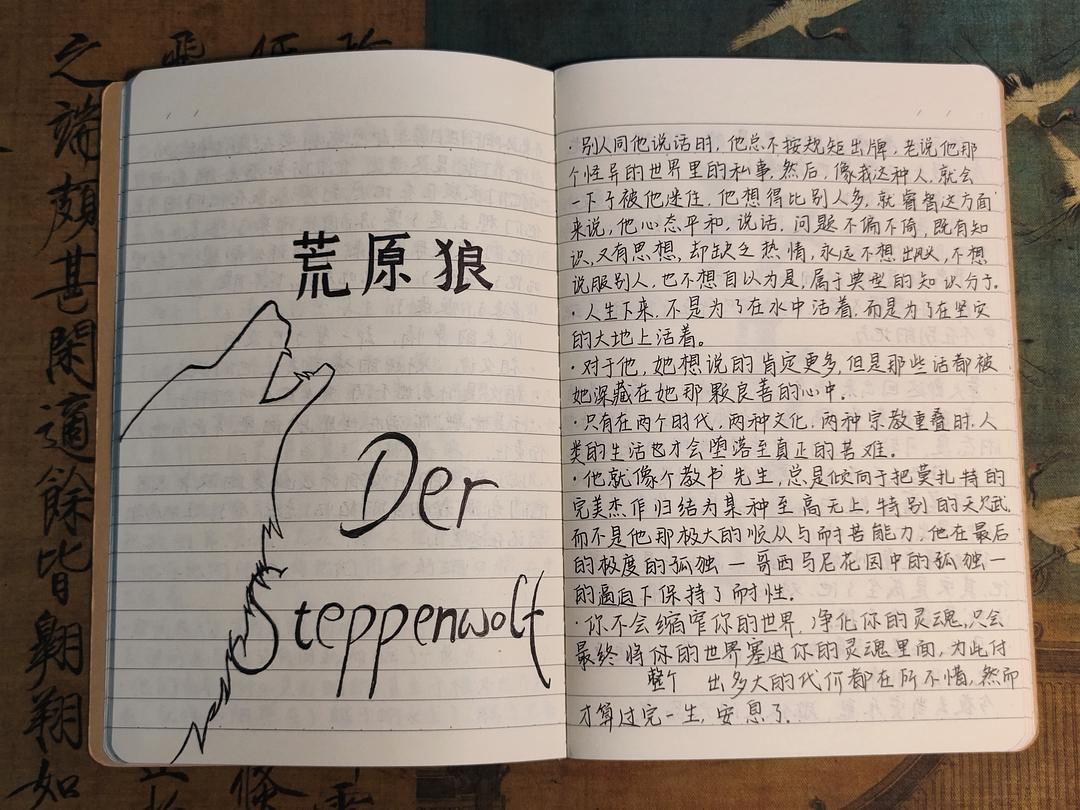 之端頗甚閑適餘皆翱翔如
荒原狼
Der
Steppenwolf
·别人同他说话时,他总不按规矩出牌,老说他那
个怪异的世界里的私事,然后,像我这种人,就会
一下子被他迷住,他想得比别人多,就睿智这方面
来说,他心态平和,说话、问题不偏不倚,既有知
识、又有思想,却缺乏热情,永远不想出风头,不想
说服别人,也不想自以为是,属于典型的知识分子。
·人生下来,不是为了在水中活着,而是为了在坚实
的大地上活着。
·对于他,她想说的肯定更多,但是那些话都被
她深藏在她那颗良善的心中.
·只有在两个时代,两种文化,两种宗教重叠时,人
类的生活也才会堕落至真正的苦难.
·他就像个教书先生,总是倾向于把莫扎特的
完美杰作归结为某种至高无上,特别的天赋,
而不是他那极大的顺从与耐苦能力,他在最后
的极度的孤独 — 哥西马尼花园中的孤独 —
的逼迫下保持了耐性.
·你不会缩窄你的世界,净化你的灵魂,只会
最终将你的世界塞进你的灵魂里面,为此付
整个 出多大的代价都在所不惜,然而
才算过完一生,安息了.